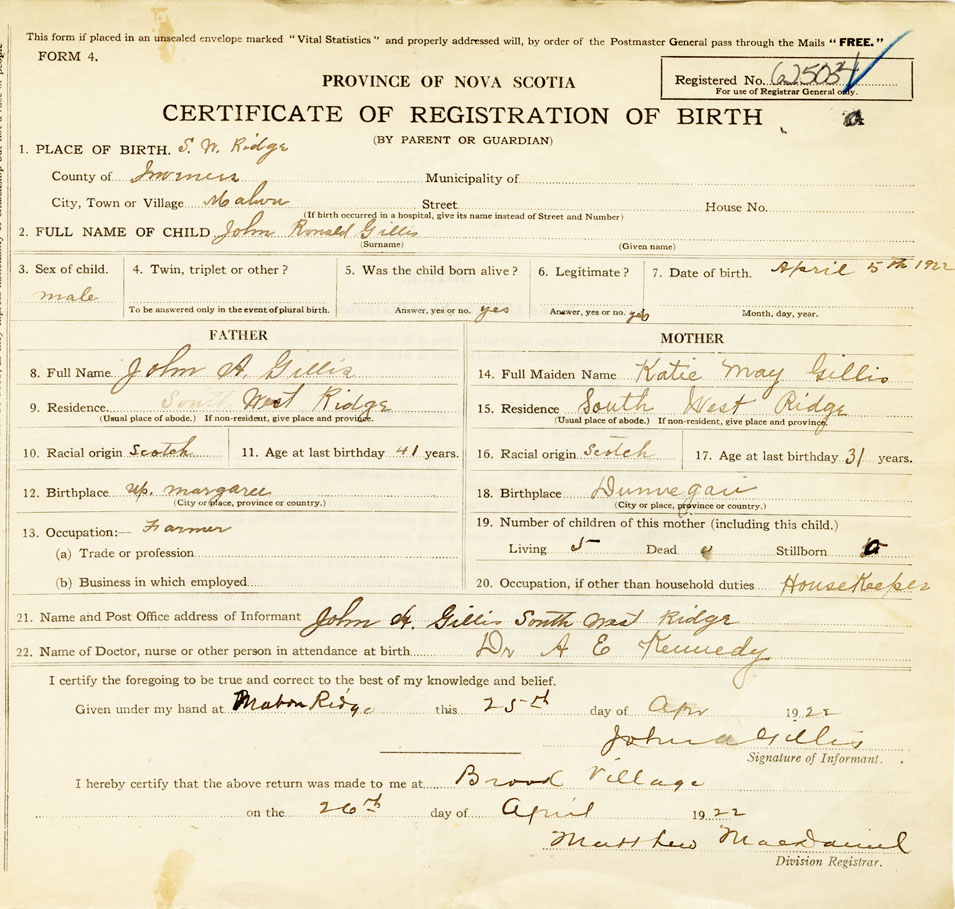 This form if placed in an unsealed envelope marked "Vital Statistics" and properly addressed will, by order of the Postmaster General pass through the Mails "FREE."
FORM 4.
Registered No. 62503
For use of Registrar General only.
PROVINCE OF NOVA SCOTIA
CERTIFICATE OF REGISTRATION OF BIRTH
(BY PARENT OR GUARDIAN)
1. PLACE OF BIRTH. S. W. Ridge
County of Inverness Municipality of
City, Town or Village Mabou Street House No.
(If birth occurred in a hospital, give its name instead of Street and Number)
2. FULL NAME OF CHILD John Ronald Gillis
(Surname) (Given name)
3. Sex of child. 4. Twin, triplet or other? 5. Was the child born alive? 6. Legitimate? 7. Date of birth. April 5th 1922
male
To be answered only in the event of plural birth. Answer, yes or no. yes Answer, yes or no. yes Month, day, year.
FATHER MOTHER
8. Full Name John A. Gillis 14. Full Maiden Name Katie May Gillis
9. Residence South West Ridge 15. Residence South West Ridge
(Usual place of abode.) If non-resident, give place and province. (Usual place of abode.) If non-resident, give place and province.
10. Racial origin Scotch 11. Age at last birthday 41 years. 16. Racial origin Scotch 17. Age at last birthday 31 years.
12. Birthplace Up. Margaree 18. Birthplace Dunvegan
(City or place, province or country.) (City or place, province or country.)
13. Occupation:— Farmer 19. Number of children of this mother (including this child.)
(a) Trade or profession Living 5 Dead Stillborn
(b) Business in which employed 20. Occupation, if other than household duties HouseKeeper
21. Name and Post Office address of Informant John A. Gillis South West Ridge
22. Name of Doctor, nurse or other person in attendance at birth Dr A E Kennedy
I certify the foregoing to be true and correct to the best of my knowledge and belief.
Given under my hand at Mabou Ridge this 25th day of Apr 1922
John A Gillis
Signature of Informant.
I hereby certify that the above return was made to me at Brood Village
on the 26th day of April 1922
Matthew MacDaniel
Division Registrar.